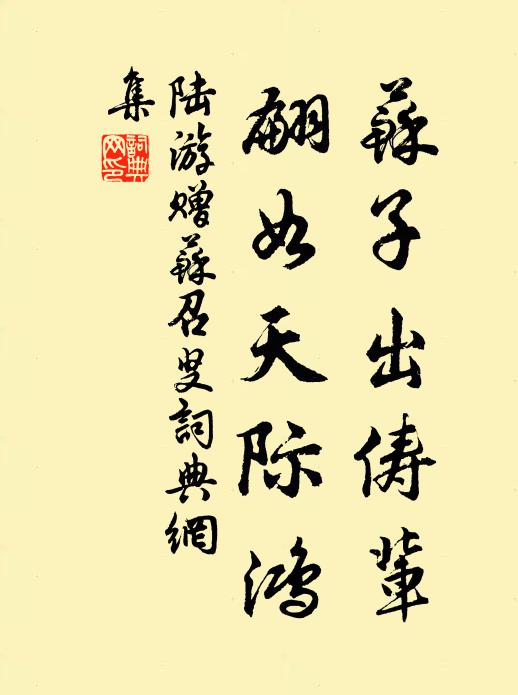 蘇子出俦輩
翩如天际鴻
陸游赠蘇召叟詞典網
集
詞典網印